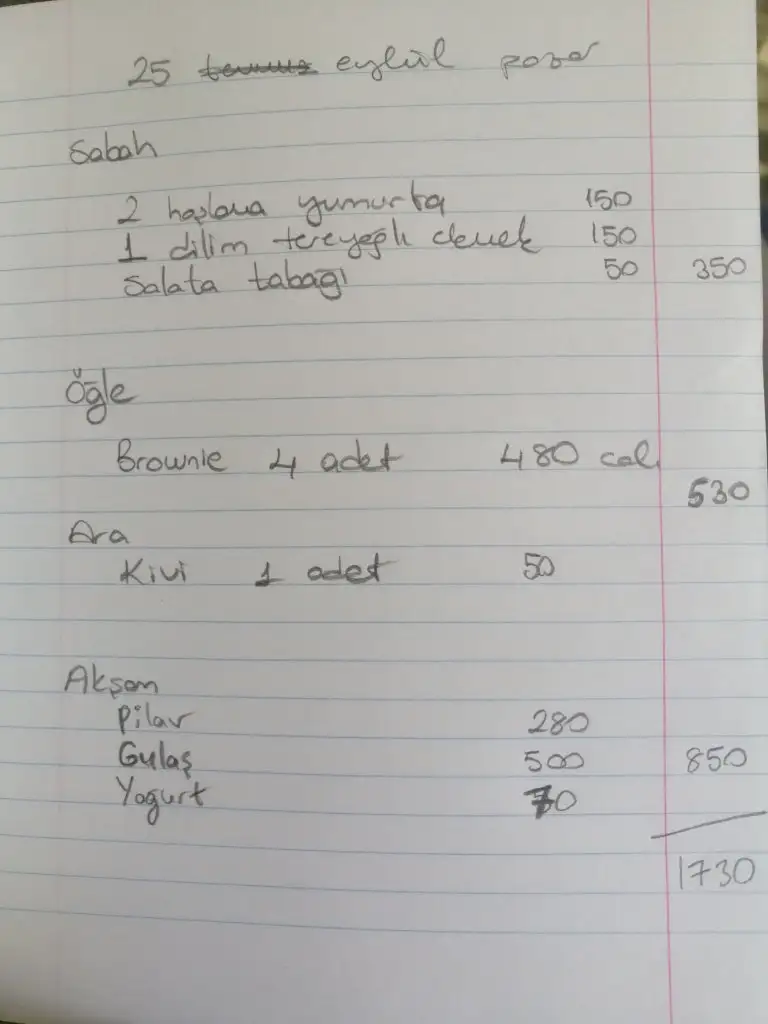 25 temmuz eylül pazar
Sabah
2 haşlama yumurta 150
1 dilim tereyağlı ekmek 150
Salata tabağı 50 350
Öğle
Brownie 4 adet 480 cal.
530
Ara
Kivi 1 adet 50
Akşam
Pilav 280
Gulaş 500 850
Yogurt 70
1730